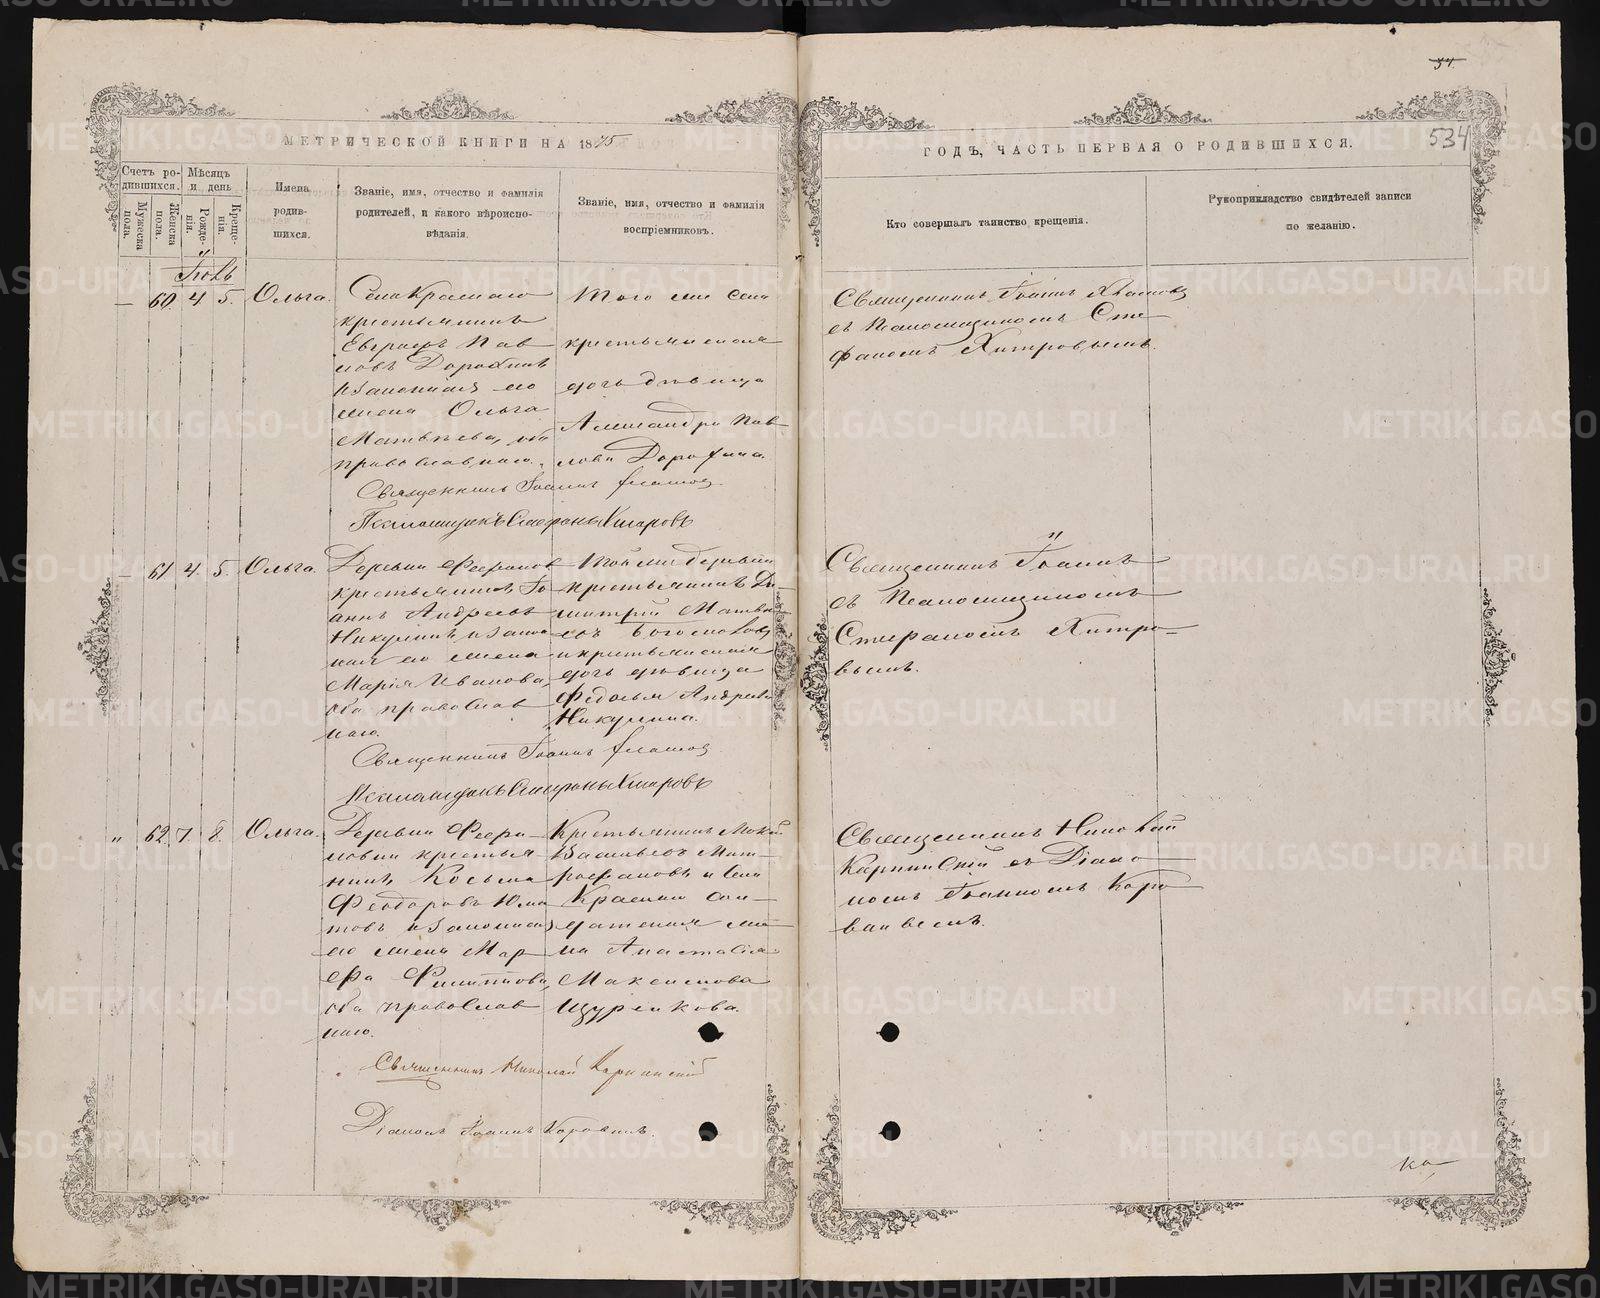 34.
534
МЕТРИЧЕСКОЙ КНИГИ НА 1875
ГОДЪ, ЧАСТЬ ПЕРВАЯ О РОДИВШИХСЯ.
Счетъ ро-
дившихся.
Мужеска
пола.
Женска
пола.
Мѣсяцъ
и день
Рожде-
нія.
Креще-
нія.
Имена
родив-
шихся.
Званіе, имя, отчество и фамилія
родителей, и какого вѣроиспо-
вѣданія.
Званіе, имя, отчество и фамилія
воспріемниковъ.
Кто совершалъ таинство крещенія.
Рукоприкладство свидѣтелей записи
по желанію.
Іюль
— 60. 4. 5. Ольга.
Села Краснаго
крестьянинъ
Евграфъ Пав
ловъ Дорофинъ
и законная его
жена Ольга
Матвѣева, оба
православнаго.
Того же села
крестьянская
дочь дѣвица
Александра Пав-
лова Дорофина.
Священникъ Іоаннъ
съ Псаломщикомъ Сте
фаномъ Хитровымъ.
Священникъ Іоаннъ
Псаломщикъ Стефанъ Хитровъ
— 61. 4. 5. Ольга.
Деревни
крестьянинъ Іо
аннъ Андреевъ
Никулинъ и закон
ная его жена
Марія Иванова,
оба православ
наго.
Той же деревни
крестьянинъ Ди-
митрій Матвѣ
евъ Богомоловъ
и крестьянская
дочь дѣвица
Федосья Андреева
Никулина.
Священникъ Іоаннъ
съ Псаломщикомъ
Стефаномъ Хитро-
вымъ.
Священникъ Іоаннъ
Псаломщикъ Стефанъ Хитровъ
„ 62. 7. 8. Ольга.
Деревни
новки крестья
нинъ Косьма
Феодоровъ
товъ и законная
его жена Мар
фа Филиппова,
оба православ
наго.
Крестьянинъ
Васильевъ Мит-
рофановъ и села
Краснаго сол-
датская же-
на Анастасія
Максимова
Щуренкова.
Священникъ Николай
Карпинскій съ Діако
номъ Іоанномъ Коро
Священникъ Николай Карпинскій
Діаконъ Іоаннъ
METRIKI.GASO-URAL.RU